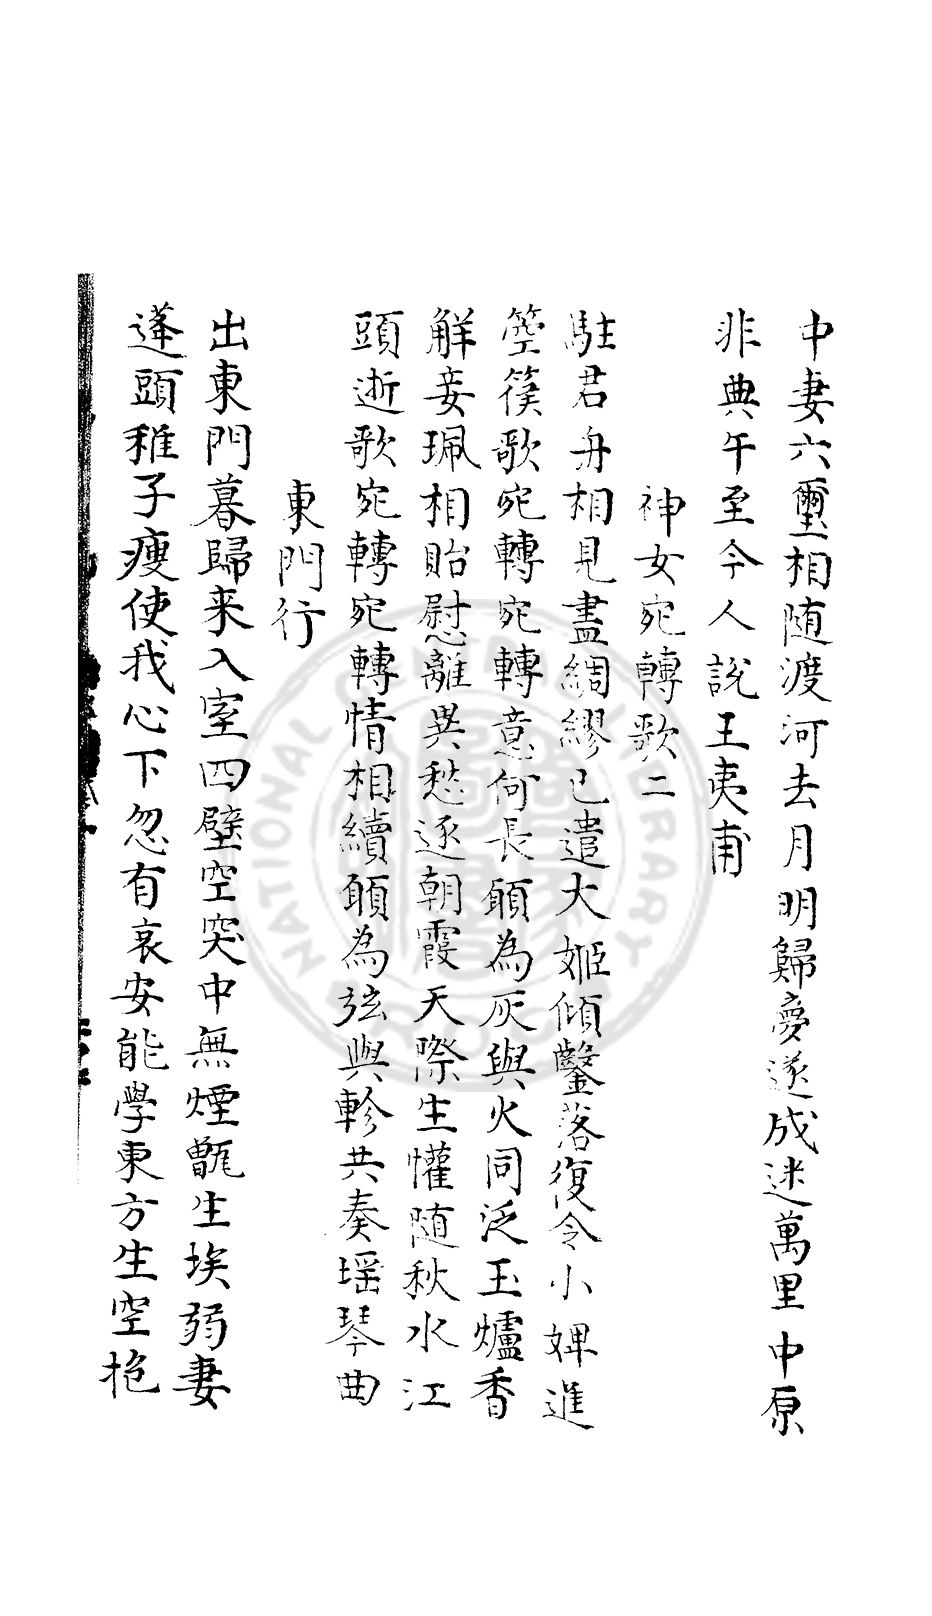 中妻六璽相随渡河去月明歸夢遂成迷萬里中原
非典午至今人說王夷甫
神女宛轉歌二
駐君舟相見盡綢繆已遣大姬傾鑿落復令小婢進
箜篌歌宛轉宛轉意何長願為灰與火同泛玉爐香
解妾珮相貽慰離異愁逐朝霞天際生懽随秋水江
頭逝歌宛轉宛轉情相續願為弦與軫共奏瑶琴曲
東門行
出東門暮歸来入室四壁空突中無煙甑生埃弱妻
蓬頭稚子瘦使我心下忽有哀安能學東方生空抱
NATIONAL CENTRAL LIBRARY